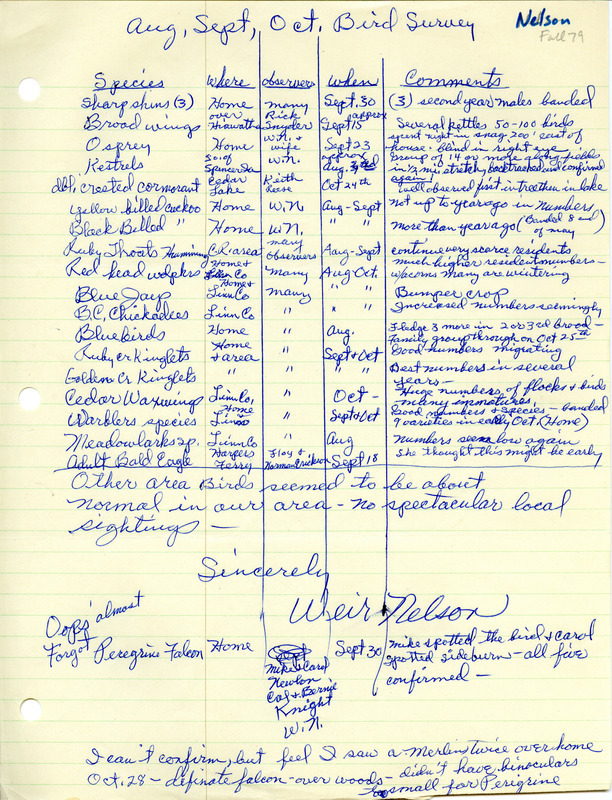 Aug, Sept, Oct. Bird Survey
Nelson
Fall 79
Species Where observers when Comments
Sharpshins (3) Home many Sept. 30 (3) second year males banded
Broad wings over Hiawatha Rick Snyder approx Sept 15 Several kettles 50-100 birds spent night in snag 200' east of
Osprey Home W.N. & wife Sept 23 house. blind in right eye
Kestrels So. of Spencer Ia W.N. approx Aug. Group of 14 or more along fields in 1/2 mi. stretch, backtracked and confirmed again!
dbl. crested cormorant Cedar Lake Keith Reese Oct 24th well observed first in tree then in lake
yellow billed cuckoo Home W.N. Aug-Sept Not up to year ago in numbers
Black Billed " Home W.N. " " more than year ago (Banded 8 end of may)
Ruby Throats Humming C.R. area many observers Aug-Sept continue very scarce residents
Red head wdpkrs Home & Linn Co many Aug-Oct. much higher resident numbers - Wacorns many are wintering
Blue Jays Home & Linn Co many " " Bumper crop
B.C. Chickadees Linn Co " " " Increased numbers seemingly
Bluebirds Home " Aug. Fledge 3 more in 2 or 3rd brood - Family group through on Oct 25th
Ruby cr Kinglets Home & area " Sept & Oct Good numbers migrating
Golden Cr Kinglets " " " Best numbers in several years -
Cedar Waxwings Linn Co, " Oct - Huge numbers of flocks & birds many immatures
Warblers species Home Linn " Sept & Oct Good numbers & species - banded 9 varieties in early Oct. (Home)
Meadowlarks sp. Linn Co " Aug numbers seem low again
Adult Bald Eagle Harpers Ferry Floy & Norman Erickson Sept 18 She thought this might be early
Other area Birds seemed to be about
normal in our area - no spectacular local
sightings -
Sincerely
Weir Nelson
Oops' almost
Forgot Peregrine Falcon Home Sept 30 Mike spotted the bird & Carol
Mike & Carol spotted sideburn - all five
Newlon confirmed -
Cal & Bernie
Knight
W.N.
I can't confirm, but feel I saw a Merlin twice over home
Oct. 28 - definate falcon - over woods - didn't have binoculars
Too small for Peregrine